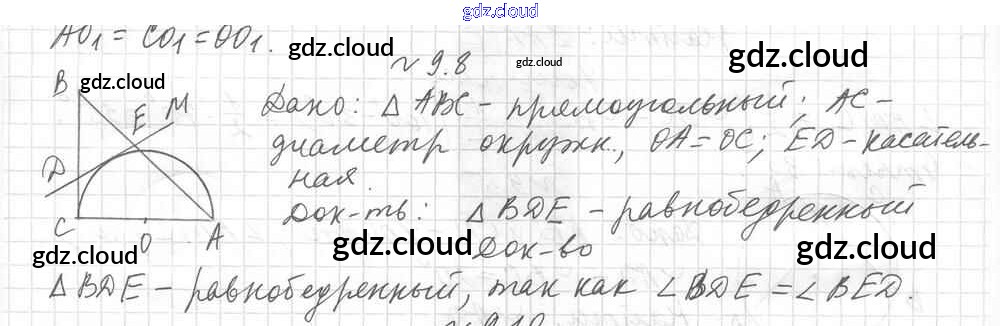 gdz.cloud
AO₁ = CO₁ = OO₁.
gdz.cloud
gdz.cloud
gdz.cloud
N 9.8
B
gdz.cloud
E M
D
C
O
A
Дано: △ ABC - прямоугольный; AC -
диаметр окружн., OA = OC; ED - касатель-
ная.
Док-ть: △ BDE - равнобедренный
Док-во
gdz.cloud
gdz.cloud
gdz.cloud
△ BDE - равнобедренный, так как ∠BDE = ∠BED.